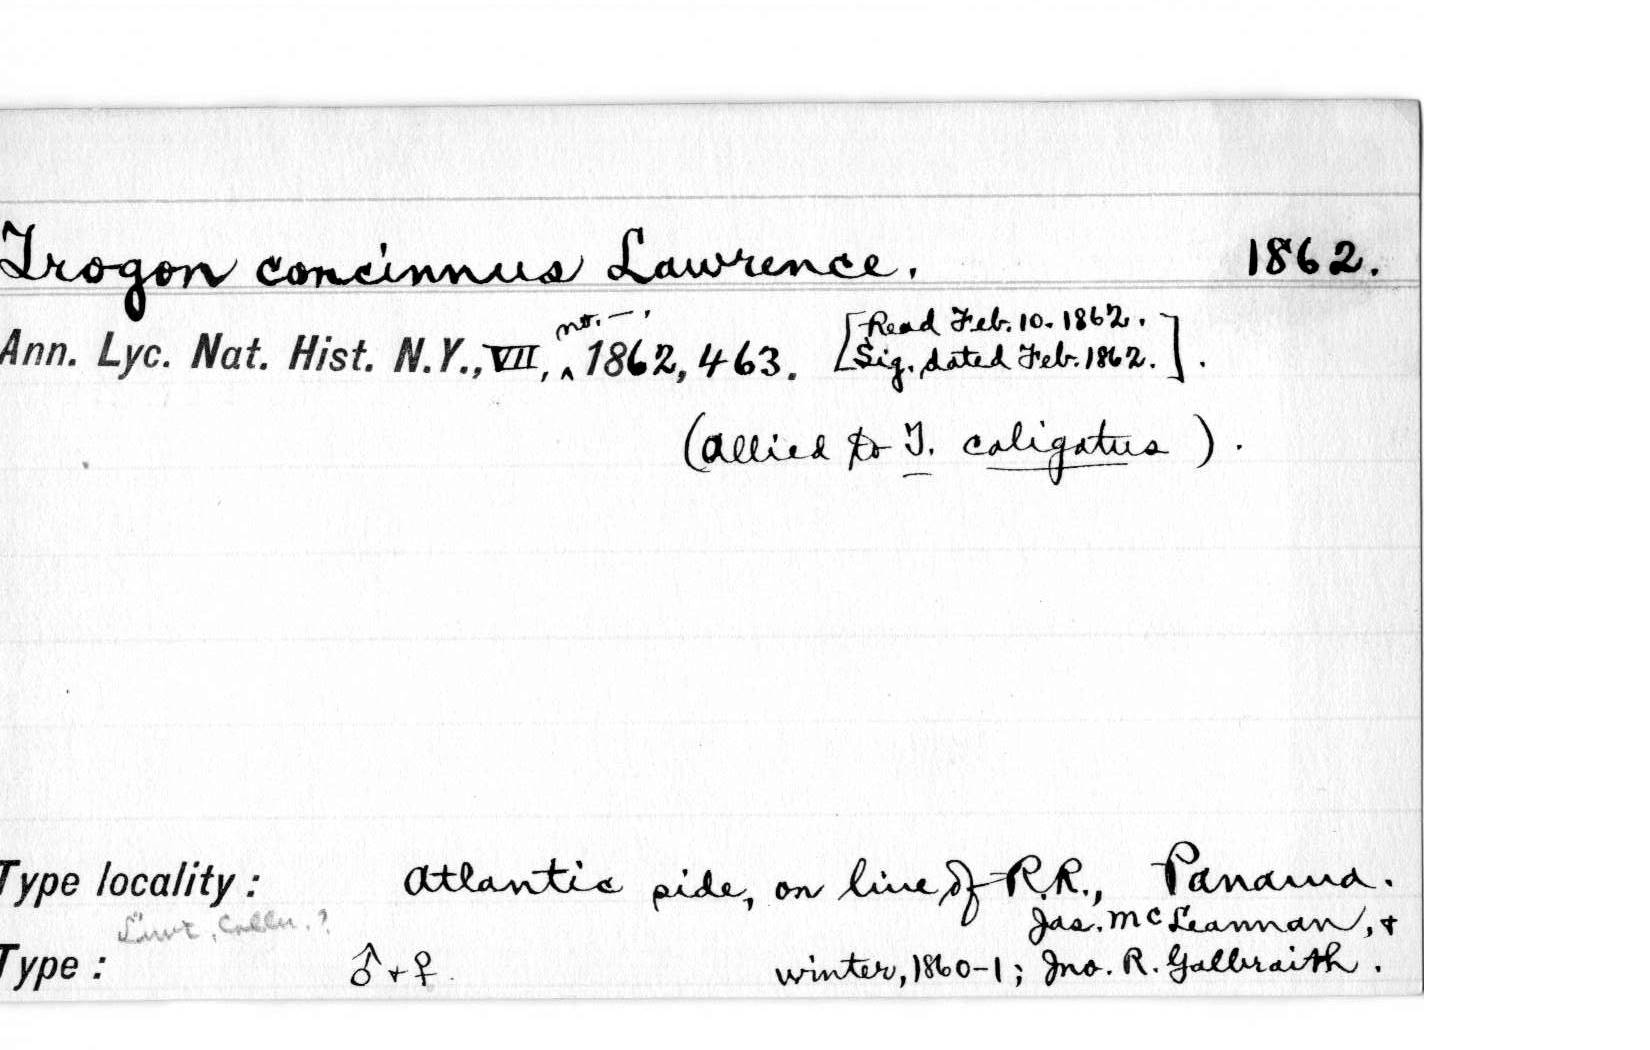 Trogon concinnus Lawrence. 1862.
Ann. Lyc. Nat. Hist. N.Y., VII, ‸ no. —, 1862, 463. [Read Feb. 10. 1862. Sig. dated Feb. 1862.].
(allied to T. caligatus).
Type locality: Atlantic side, on line of R.R., Panama.
Jas. McLeannan, +
Type: ♂ + ♀. winter, 1860-1; Jno. R. Galbraith.